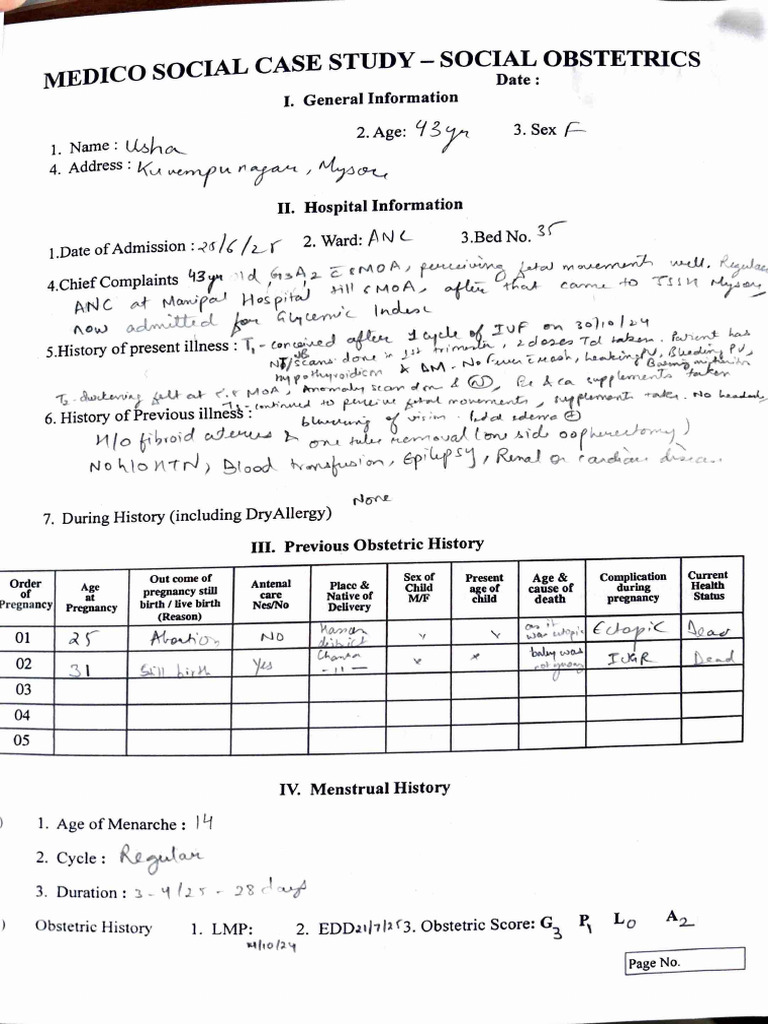 MEDICO SOCIAL CASE STUDY – SOCIAL OBSTETRICS
Date :
I. General Information
1. Name : Usha 2. Age: 43yr 3. Sex F
4. Address : Kuvempunagar, Mysore
II. Hospital Information
1.Date of Admission : 25/6/25 2. Ward: ANC 3.Bed No. 35
4.Chief Complaints 43yr old, G3A2 8MOA, perceiving fetal movements well. Regular
ANC at Manipal Hospital till 6MOA, after that came to JSSH Mysore,
now admitted for Glycemic Index
5.History of present illness : T1 - conceived after 1 cycle of IVF on 30/10/24
NT/scans done in 1st trimester, 2 doses Td taken. Patient has
hypothyroidism & DM. No Fever, rash, leaking PV, Bleeding PV, Burning micturition
T2 - quickening felt at MOA, Anomaly scan don & N, Fe & ca supplements taken
T3 - continued to perceive fetal movements, supplement taken. No headache
6. History of Previous illness : blurring of vision. pedal edema +
H/o fibroid uterus & one tube removal (one side oopherectomy)
No h/o HTN, Blood transfusion, Epilepsy, Renal or cardiac disease.
None
7. During History (including DryAllergy)
III. Previous Obstetric History
Order of Pregnancy Age at Pregnancy Out come of pregnancy still birth / live birth (Reason) Antenal care Nes/No Place & Native of Delivery Sex of Child M/F Present age of child Age & cause of death Complication during pregnancy Current Health Status
01 25 Abortion NO Hassan district as it was ectopic Ectopic Dead
02 31 Still birth Yes -11- baby was not growing IUGR Dead
03
04
05
IV. Menstrual History
1. Age of Menarche : 14
2. Cycle : Regular
3. Duration : 3-4/25-28 days
Obstetric History 1. LMP: /10/24 2. EDD 21/7/25 3. Obstetric Score: G3 P1 L0 A2
Page No.